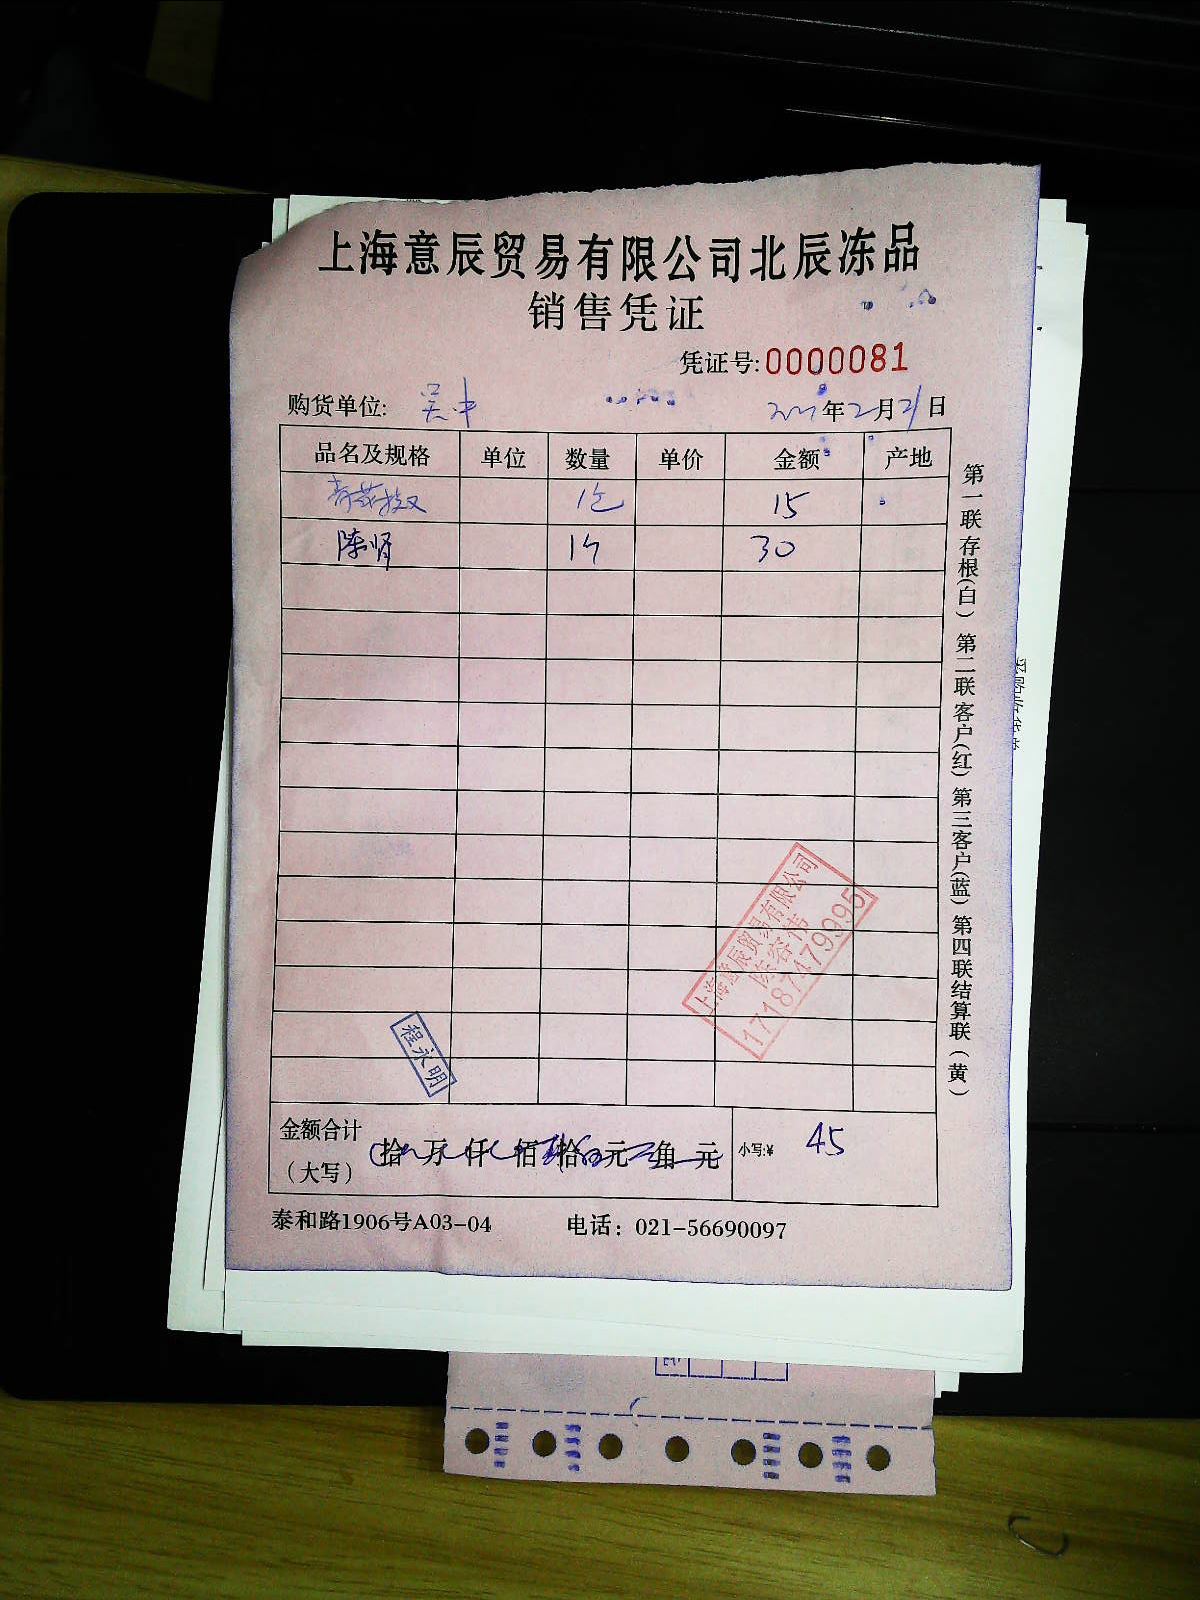 上海意辰贸易有限公司北辰冻品
销售凭证
凭证号:0000081
购货单位: 吴中 年2月21日
品名及规格 单位 数量 单价 金额 产地
1包 15
陈肾 1个 30
上海意辰贸易有限公司
陈容伟
17187479995
程永明
金额合计
(大写) 拾 万 仟 佰 拾 元 角 元 小写:¥ 45
泰和路1906号A03-04 电话: 021-56690097
第一联存根(白) 第二联客户(红) 第三客户(蓝) 第四联结算联(黄)